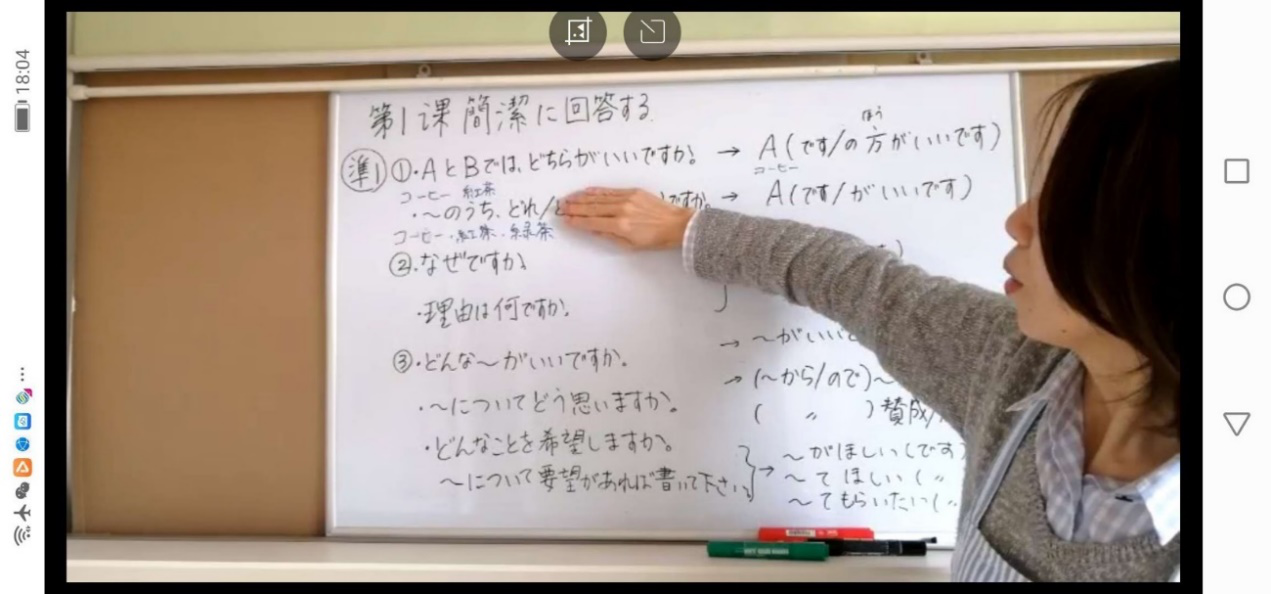 18:04
第1课 簡潔に回答する
準1 ①・AとBでは、どちらがいいですか。 → A(です/の方がいいです)
ほう
コーヒー 紅茶
コーヒー
・～のうち、どれ/ ですか。 → A(です/がいいです)
コーヒー・紅茶・緑茶
②・なぜですか。
・理由は何ですか。
③・どんな～がいいですか。 → ～がいい
・～についてどう思いますか。 → (～から/ので)～
( 〃 ) 賛成/
・どんなことを希望しますか。
～について要望があれば書いて下さい。
→ ～がほしい(です)
～てほしい( 〃
～てもらいたい( 〃